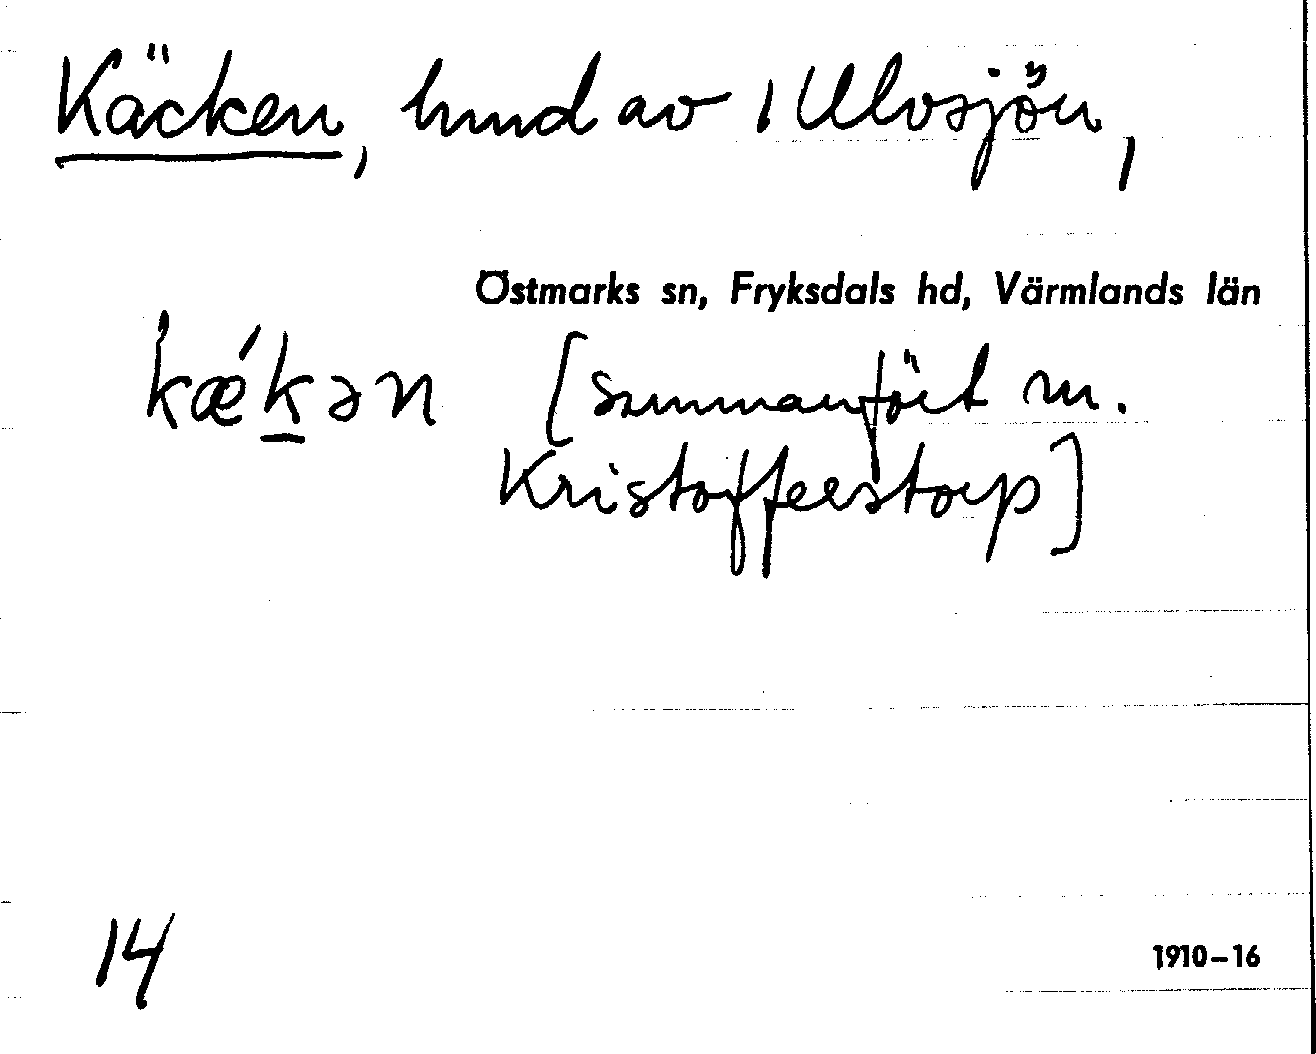 Käcken, hmd av 1 Ulvsjön,
Östmarks sn, Fryksdals hd, Värmlands län
kæ´kən [sammanfört m.
Kristofferstorp]
14
1910-16